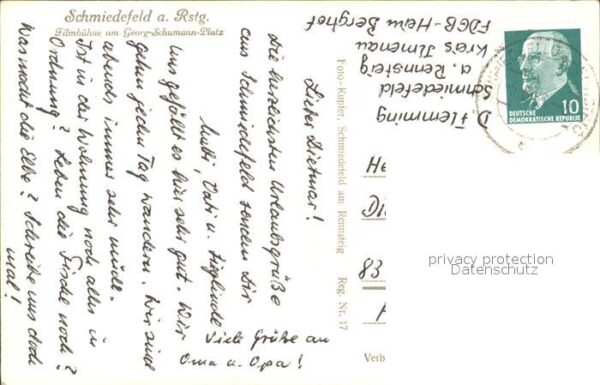 Schmiedefeld a. Rstg.
Filmbühne am Georg-Schumann-Platz
Lieber Dietmar!
Die herzlichsten Urlaubsgrüße
aus Schmiedefeld senden Dir
Mutti, Vati u. Sieglinde
Uns gefällt es hier sehr gut. Wir
gehen jeden Tag wandern. Wir sind
abends immer sehr müde.
Ist in der Wohnung noch alles in
Ordnung? Leben die Fische noch?
Was macht die Elbe? Schreibe uns doch
mal!
Viele Grüße an
Oma u. Opa!
Foto-Kupfer, Schmiedefeld am Rennsteig Reg. Nr. 17
D. Flemming
Schmiedefeld
a. Rennsteig
Kreis Ilmenau
FDGB-Heim Berghof
10
DEUTSCHE
DEMOKRATISCHE REPUBLIK
He
Di
83
Verb
privacy protection
Datenschutz